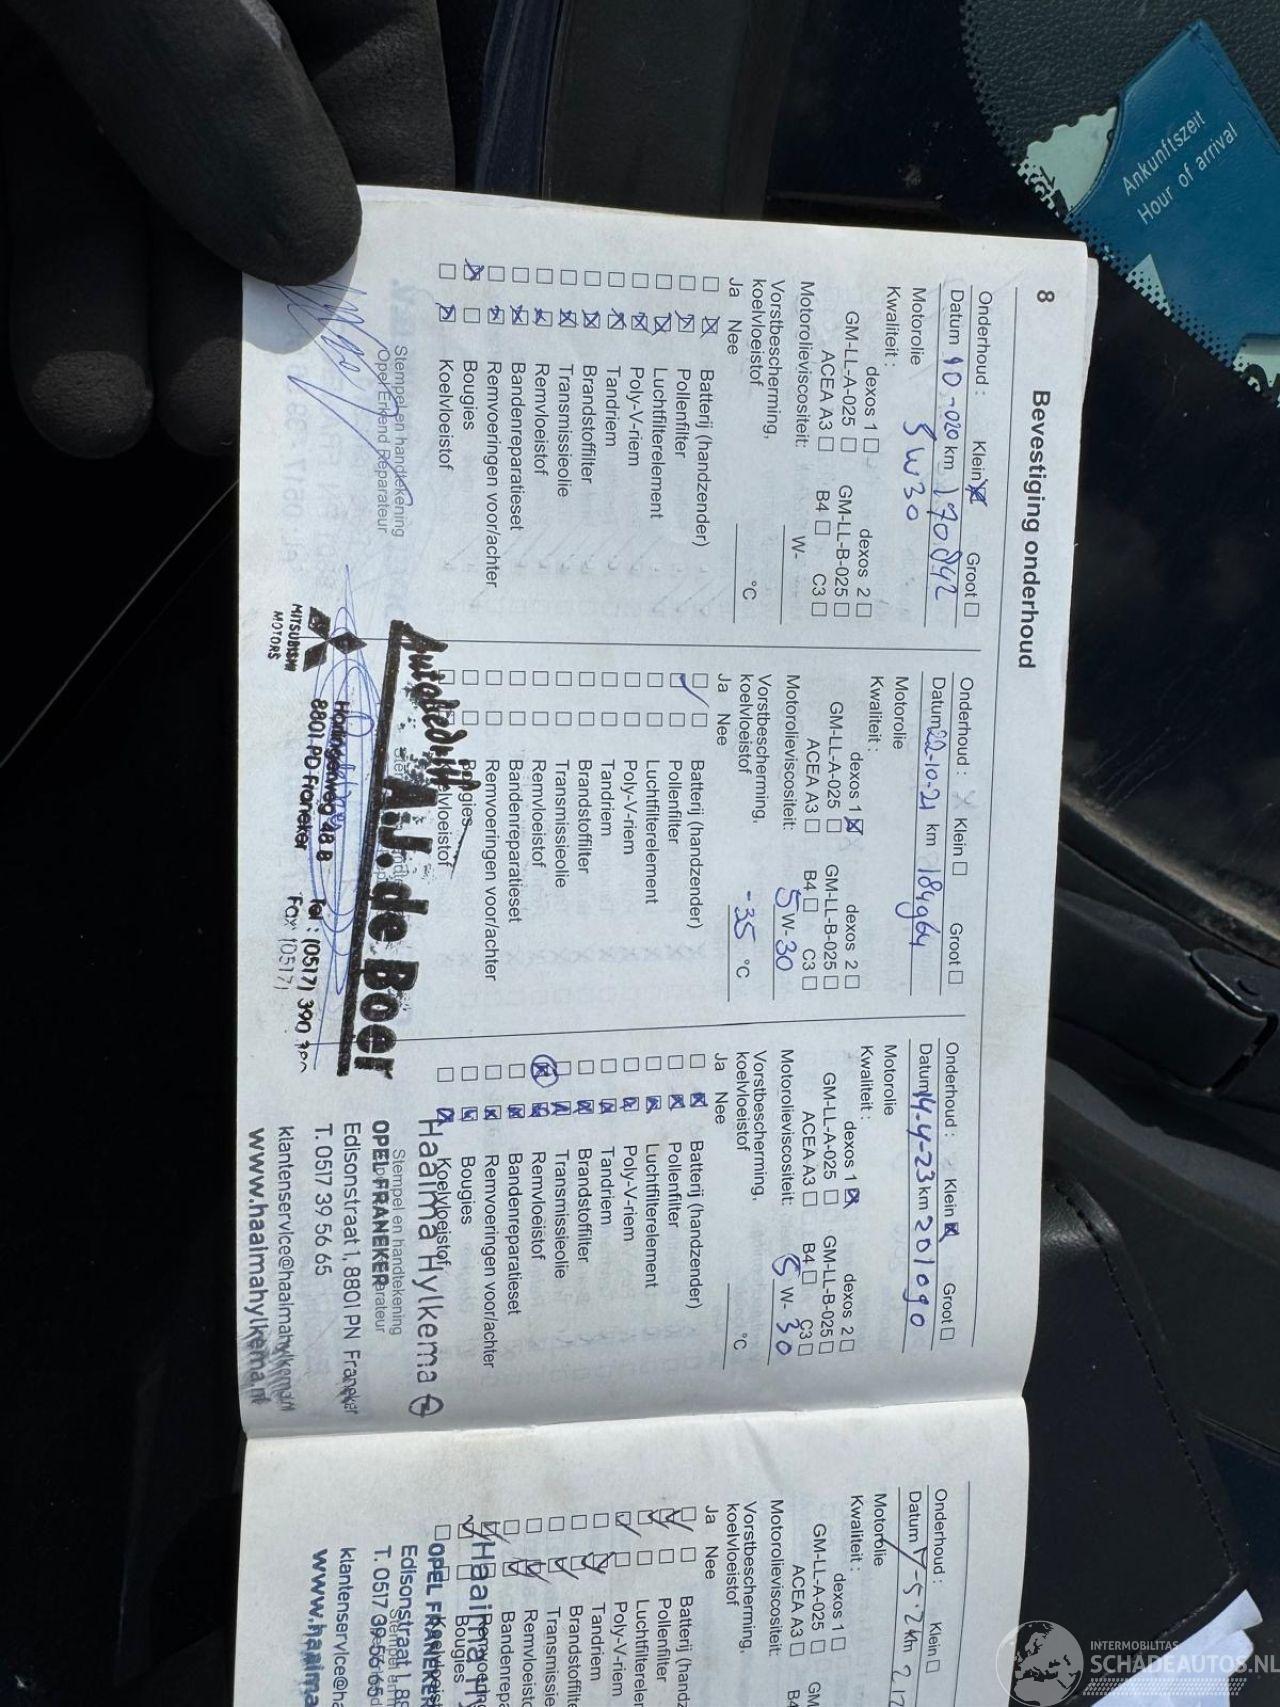 8 Bevestiging onderhoud
Onderhoud : Klein Groot
Datum 10-020 km 170.942
Motorolie 5W30
Kwaliteit :
dexos 1 dexos 2
GM-LL-A-025 GM-LL-B-025
ACEA A3 B4 C3
Motorolieviscositeit: W-
Vorstbescherming,
koelvloeistof °C
Ja Nee
Batterij (handzender)
Pollenfilter
Luchtfilterelement
Poly-V-riem
Tandriem
Brandstoffilter
Transmissieolie
Remvloeistof
Bandenreparatieset
Remvoeringen voor/achter
Bougies
Koelvloeistof
Stempel en handtekening
Opel Erkend Reparateur
Onderhoud : Klein Groot
Datum 22-10-21 km 184964
Motorolie
Kwaliteit :
dexos 1 dexos 2
GM-LL-A-025 GM-LL-B-025
ACEA A3 B4 C3
Motorolieviscositeit: 5 W- 30
Vorstbescherming,
koelvloeistof -35 °C
Ja Nee
Batterij (handzender)
Pollenfilter
Luchtfilterelement
Poly-V-riem
Tandriem
Brandstoffilter
Transmissieolie
Remvloeistof
Bandenreparatieset
Remvoeringen voor/achter
Bougies
Koelvloeistof
Autobedrijf
A.J. de Boer
Harlingerweg 48 B Tel : (0517) 390
8801 PD Franeker Fax (0517)
MITSUBISHI
MOTORS
Onderhoud : Klein Groot
Datum 14-4-23 km 201090
Motorolie
Kwaliteit :
dexos 1 dexos 2
GM-LL-A-025 GM-LL-B-025
ACEA A3 B4 C3
Motorolieviscositeit: 5 W- 30
Vorstbescherming,
koelvloeistof °C
Ja Nee
Batterij (handzender)
Pollenfilter
Luchtfilterelement
Poly-V-riem
Tandriem
Brandstoffilter
Transmissieolie
Remvloeistof
Bandenreparatieset
Remvoeringen voor/achter
Bougies
Koelvloeistof
Haaima Hylkema
Stempel en handtekening
OPEL FRANEKER
Edisonstraat 1, 8801 PN Franeker
T. 0517 39 56 65
klantenservice@haaimahylkema.nl
www.haaimahylkema.nl
Onderhoud : Klein
Datum km
Motorolie
Kwaliteit :
dexos 1
GM-LL-A-025 GM
ACEA A3 B4
Motorolieviscositeit:
Vorstbescherming,
koelvloeistof
Ja Nee
Batterij (handz
Pollenfilter
Luchtfilterelem
Poly-V-riem
Tandriem
Brandstoffilte
Transmissie
Remvloeisto
Bandenrepa
Bougies
OPEL FRANEKE
Edisonstraat 1, 88
T. 0517 39 56 65
klantenservice@ha
www.haaima
Ankunftszeit
Hour of arrival
INTERMOBILITAS
SCHADEAUTOS.NL